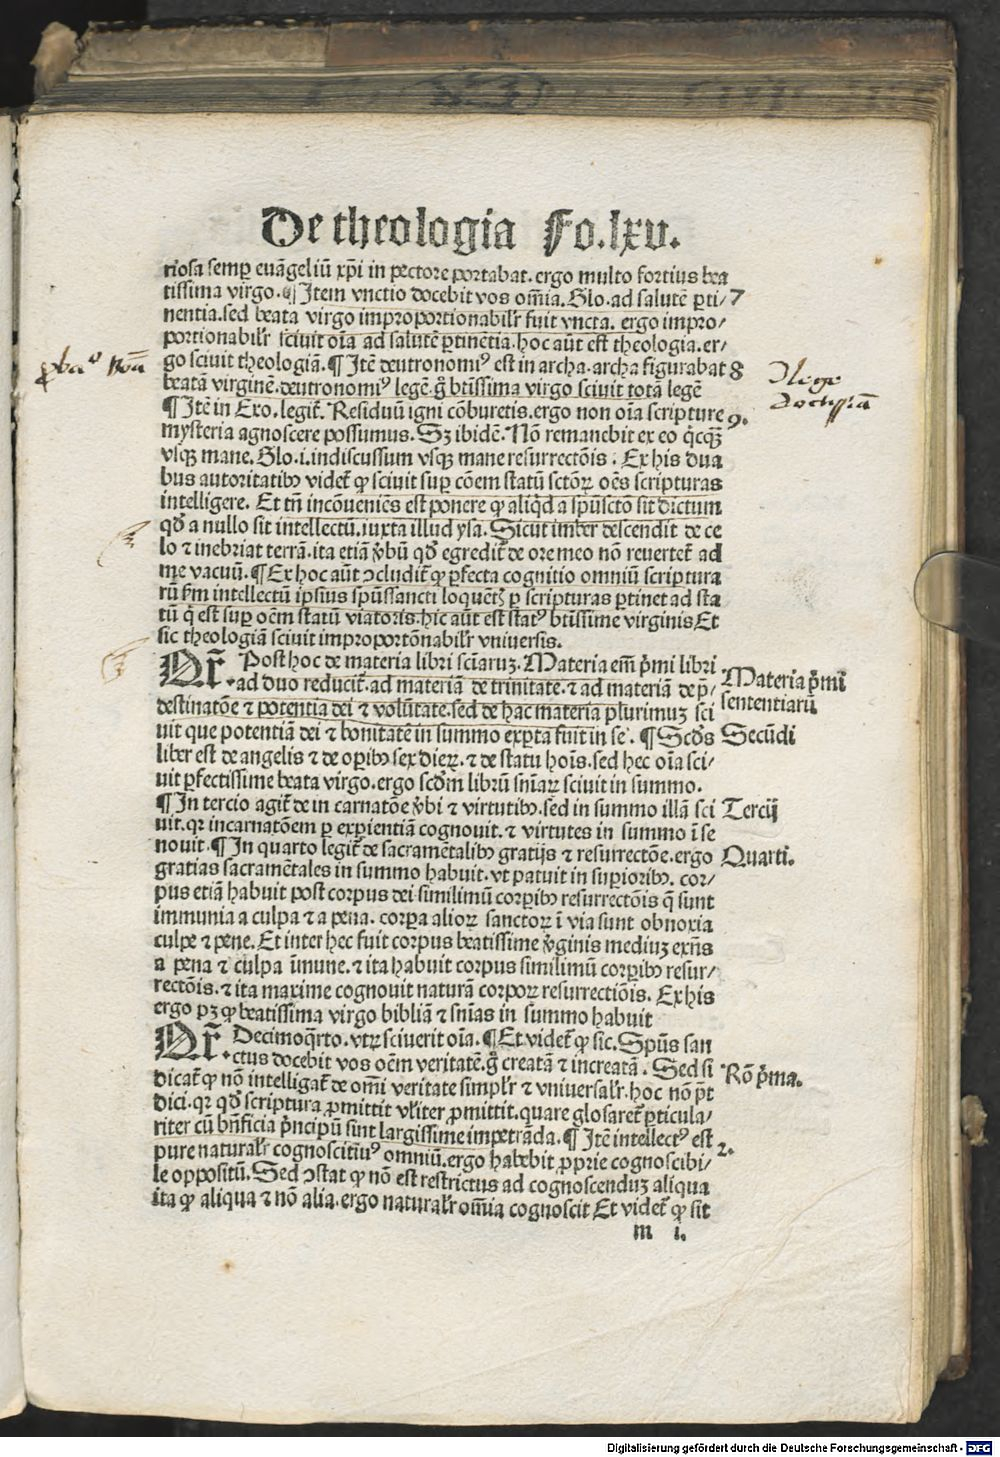 De theologia Fo.lxv.
riosa semꝑ euãgeliũ xp̃i in pectore portabat. ergo multo fortius bea
tissima virgo. ¶ Item vnctio docebit vos om̃ia. Glo. ad salutẽ ꝑti/ 7
nentia. sed beata virgo improportionabilr̃ fuit vncta. ergo impro/
portionabilr̃ sciuit oĩa ad salutẽ ꝑtinẽtia. hoc aũt est theologia. er/
go sciuit theologiã. ¶ Itẽ deutronomiꝰ est in archa. archa figurabat 8
beatã virginẽ. deutronomiꝰ legẽ. g̃ btĩssima virgo sciuit totã legẽ
¶ Itẽ in Exo. legit̃. Residuũ igni cõburetis. ergo non oĩa scripture 9.
mysteria agnoscere possumus. Sꝫ ibidẽ. Nõ remanebit ex eo q̇cq̃ꝫ
vsqꝫ mane. Glo. i. indiscussum vsqꝫ mane resurrectõis. Ex his dua
bus autoritatibꝰ videt̃ ꝙ sciuit suꝑ cõem statũ sctõꝝ oẽs scripturas
intelligere. Et tñ incõueniẽs est ponere ꝙ aliq̇d a spũsctõ sit dictum
qð a nullo sit intellectũ. iuxta illud ysa. Sicut imber descendit de ce
lo ⁊ inebriat terrã. ita etiã v̓bũ qð egredit̃ de ore meo nõ reuertet̃ ad
me vacuũ. ¶ Ex hoc aũt ↄcludit̃ ꝙ ꝑfecta cognitio omniũ scriptura
rũ ẜm intellectũ ipsius spũssancti loquẽtꝭ ꝑ scripturas ꝑtinet ad sta
tũ q̇ est suꝑ oẽm statũ viatoris. hic aũt est statꝰ btĩssime virginis Et
sic theologiã sciuit improportõnabilr̃ vniuersis.
Qr̃. Post hoc de materia libri sn̄iaruꝫ. Materia em̃ p̓mi libri Materia p̓mi
ad duo reducit̃. ad materiã de trinitate. ⁊ ad materiã de p̃/
destinatõe ⁊ potentia dei ⁊ volũtate. sed de hac materia plurimuꝫ sci sententiarũ
uit que potentiã dei ⁊ bonitatẽ in summo exꝑta fuit in se. ¶ Scðs Secũdi
liber est de angelis ⁊ de oꝑibꝰ sex dieꝝ. ⁊ de statu hoĩs. sed hec oĩa sci/
uit ꝑfectissime beata virgo. ergo scðm librũ sniãꝝ sciuit in summo.
¶ In tercio agit̃ de in carnatõe v̓bi ⁊ virtutibꝰ. sed in summo illã sci Tercij
uit. qꝛ incarnatõem ꝑ exꝑientiã cognouit. ⁊ virtutes in summo ĩ se
nouit. ¶ In quarto legit̃ de sacramẽtalibꝰ gratijs ⁊ resurrectõe. ergo Quarti.
gratias sacramẽtales in summo habuit. vt patuit in suꝑioribꝰ. cor/
pus etiã habuit post corpus dei similimũ corꝑibꝰ resurrectõis q̃ sunt
immunia a culpa ⁊ a pena. corꝑa alioꝝ sanctoꝝ ĩ via sunt obnoxia
culpe ⁊ pene. Et inter hec fuit corpus beatissime v̓ginis mediuꝫ exñs
a pena ⁊ culpa ĩmune. ⁊ ita habuit corpus similimũ corꝑibꝰ resur/
rectõis. ⁊ ita maxime cognouit naturã corpoꝝ resurrectiõis. Ex his
ergo pꝫ ꝙ beatissima virgo bibliã ⁊ snĩas in summo habuit
Qr̃. Decimoq̃rto. vtꝝ sciuerit oĩa. ¶ Et videt̃ ꝙ sic. Spũs san
ctus docebit vos oẽm veritatẽ. g̃ creatã ⁊ increatã. Sed si Rõ p̓ma.
dicat̃ ꝙ nõ intelligat̃ de omĩ veritate simplr̃ ⁊ vniuersalr̃. hoc nõ pt̃
dici. qꝛ qð scriptura ꝓmittit vl̃iter ꝓmittit. quare glosaret̃ ꝑticula/
riter cũ bñficia p̓ncipũ sint largissime impetrãda. ¶ Itẽ intellectꝰ est 2.
pure naturalr̃ cognoscitiuꝰ omniũ. ergo habebit ꝓprie cognoscibi/
le oppositũ. Sed ↄstat ꝙ nõ est restrictus ad cognoscenduꝫ aliqua
ita ꝙ aliqua ⁊ nõ alia. ergo naturalr̃ om̃ia cognoscit Et videt̃ ꝙ sit
m i.
Digitalisierung gefördert durch die Deutsche Forschungsgemeinschaft - DFG